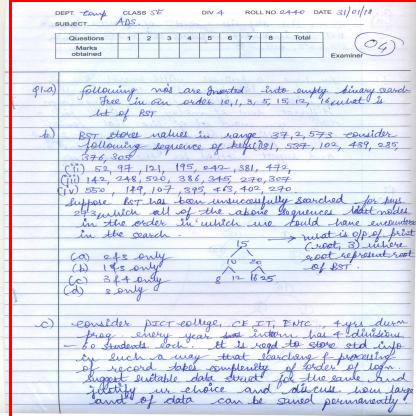 DEPT. Comp CLASS SE DIV 4 ROLL NO. 2440 DATE 31/01/18
SUBJECT ADS.
Questions 1 2 3 4 5 6 7 8 Total
Marks obtained
Examiner 04
Q1.a) following no's are Inserted into empty binary search
Tree in an order 10, 1, 3, 5, 15, 12, 16 what is
ht of BST
b) BST stores values in range 37, 2, 573 consider
following sequence of keys 81, 537, 102, 439, 285,
376, 305
(ii) 52, 97, 121, 195, 242, 381, 472,
(iii) 142, 248, 520, 386, 345, 270, 307
(iv) 550, 149, 107, 395, 463, 402, 270.
Suppose BST has been unsuccessfully searched for keys
273 which all of the above sequences list nodes
in the order in which we could have encountered
in the search.
15 → what is o/p of print
(root, 3) where
root represent root
of BST.
10 20
8 12 16 25
(a) 2 & 3 only
(b) 1 & 3 only
(c) 3 & 4 only
(d) 3 only
c) consider PICT college, CE, IT, ENTC, 4 yrs durn
prog. every year intern has 4 divisions
- 60 students each. It is reqd to store std info
in such a way that searching & processing
of record takes complexity of order of logn.
suggest suitable data struct for the same and
justify ur choice and discuss how large
amt of data can be saved permanently